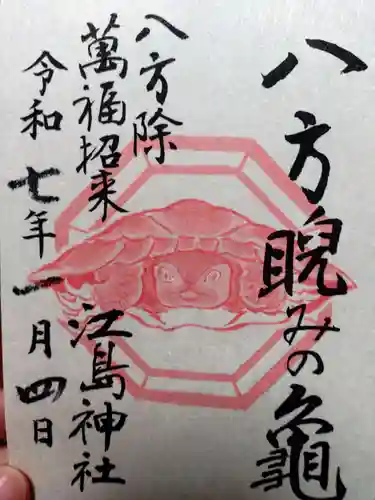 八方睨みの亀
八方除
萬福招来
江島神社
令和七年一月四日